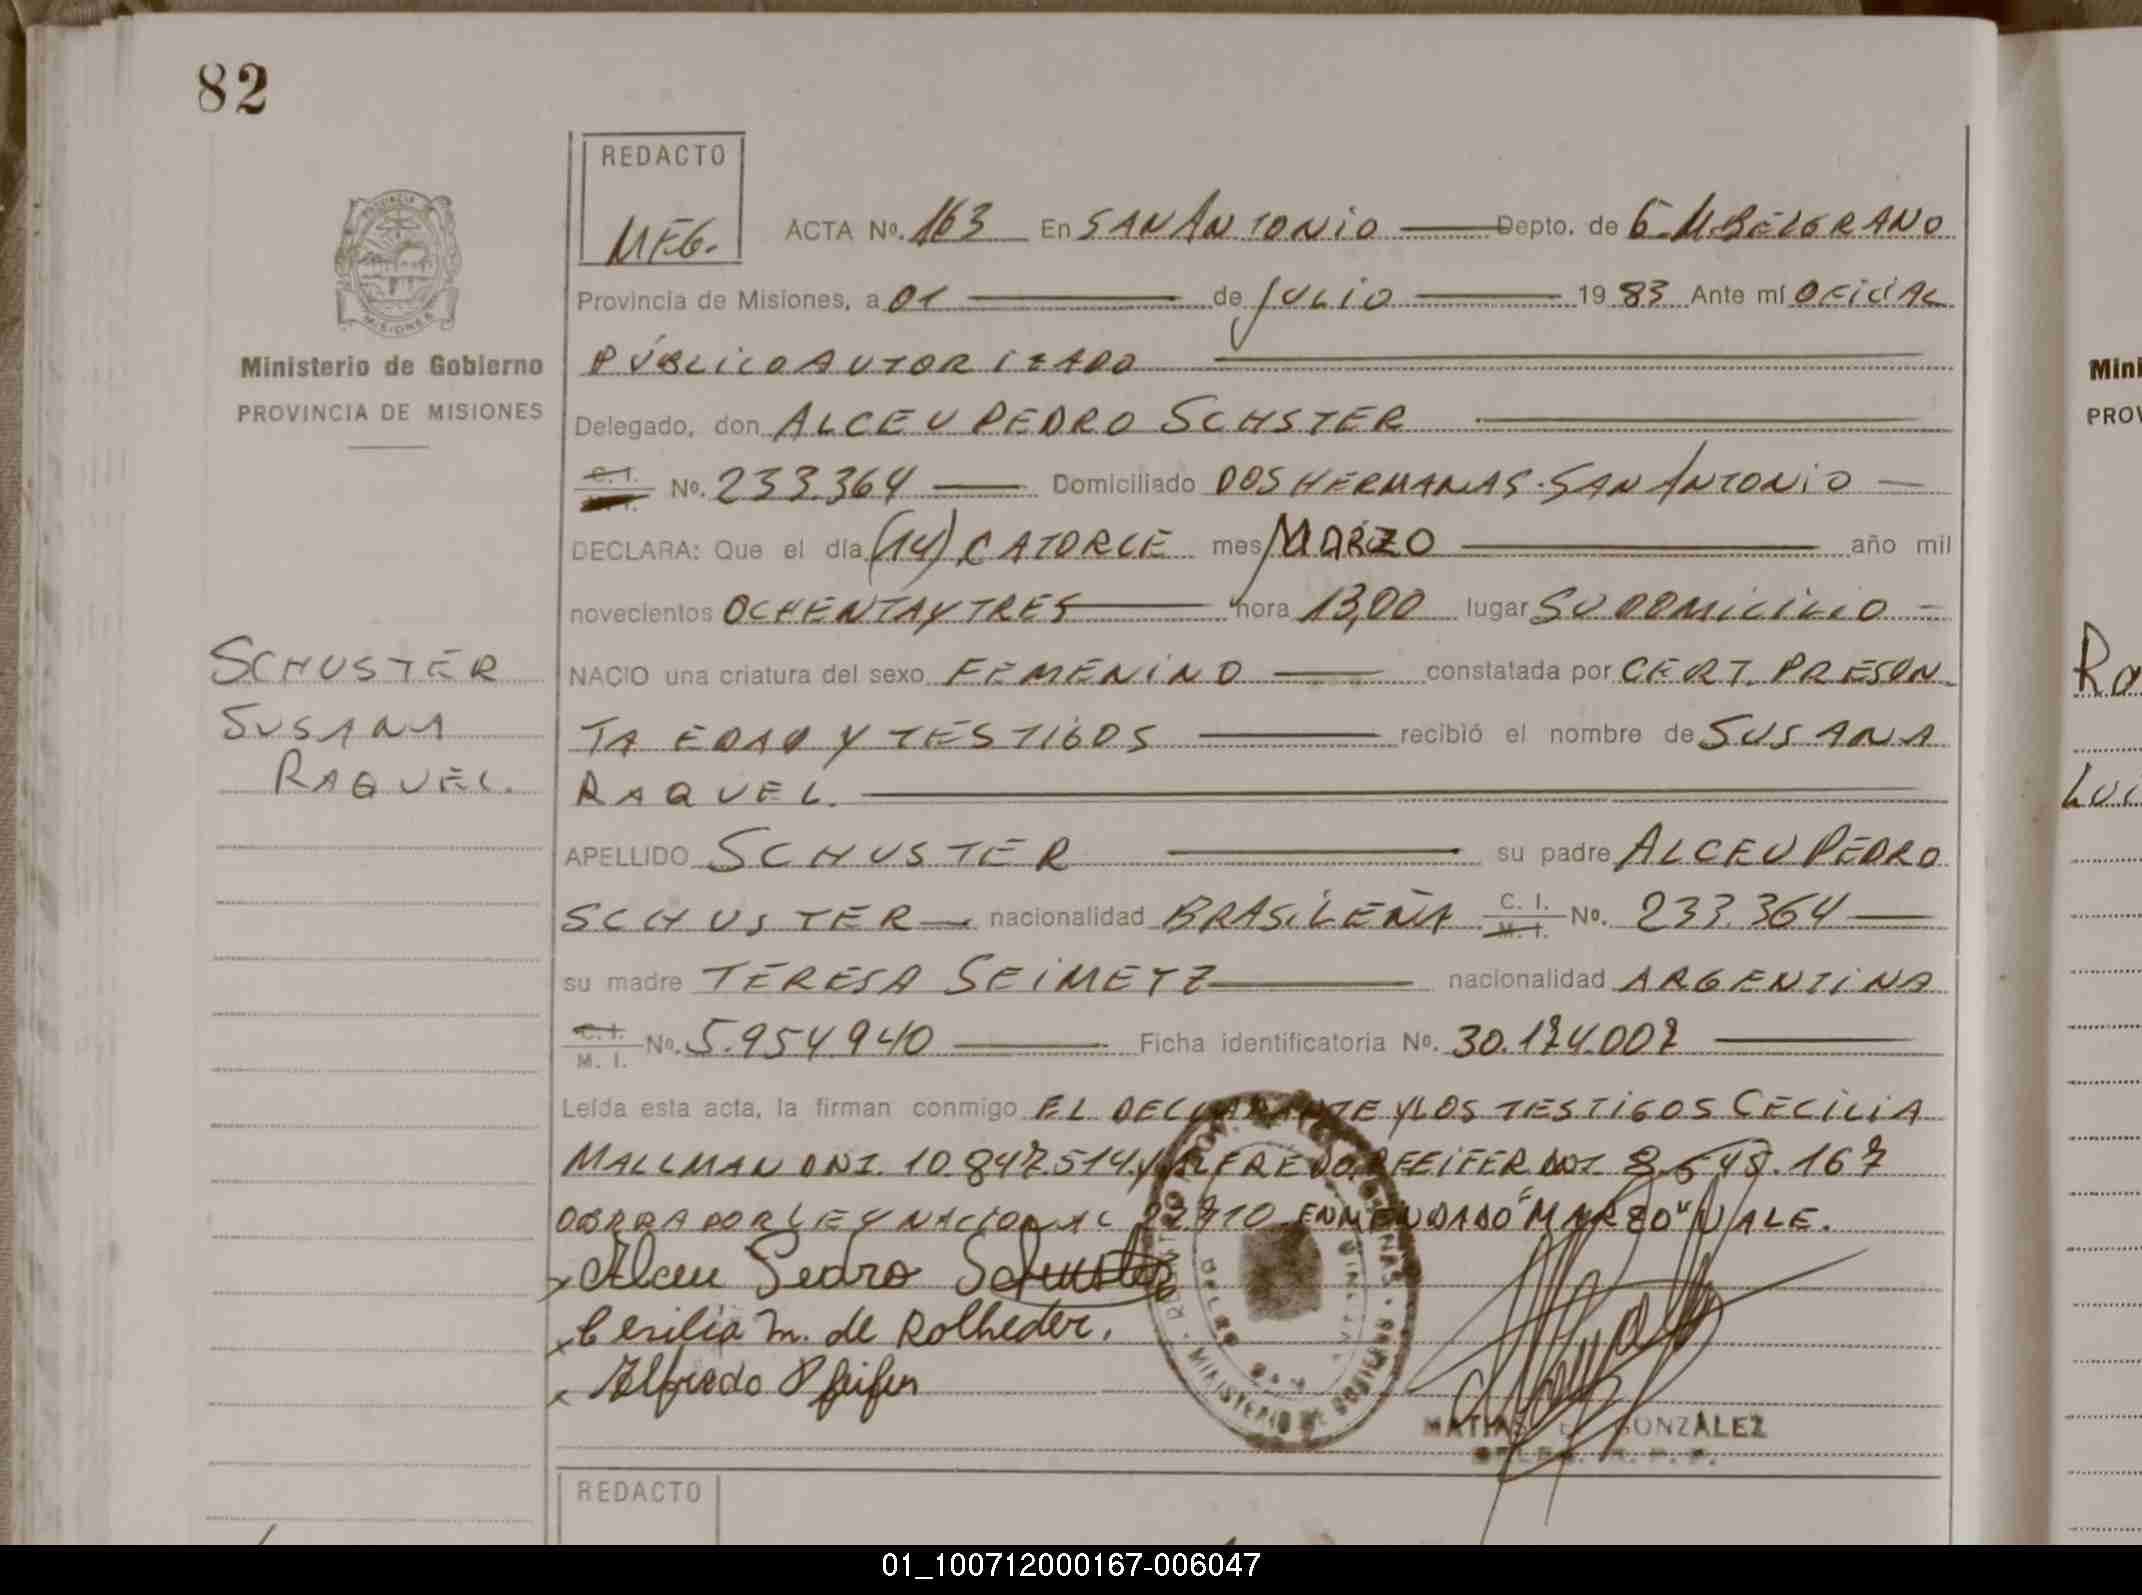 82
REDACTO
MEG.
ACTA Nº. 163 En SAN ANTONIO Depto. de G.M.BELGRANO
Provincia de Misiones, a 01 de JULIO 19 83 Ante mí OFICIAL
PÚBLICO AUTORIZADO
Delegado, don ALCEU PEDRO SCHSTER
C. I. Nº. 233.364 Domiciliado DOS HERMANAS-SAN ANTONIO
DECLARA: Que el día (14) CATORCE mes MARZO año mil
novecientos OCHENTA Y TRES hora 13,00 lugar SU DOMICILIO
NACIO una criatura del sexo FEMENINO constatada por CERT. PRESUN-
TA EDAD Y TESTIGOS recibió el nombre de SUSANA
RAQUEL.
APELLIDO SCHUSTER su padre ALCEU PEDRO
SCHUSTER nacionalidad BRASILEÑA C. I. M. I. Nº. 233.364
su madre TERESA SEIMETZ nacionalidad ARGENTINA
C. I. M. I. Nº. 5.954.940 Ficha identificatoria Nº. 30.174.007
Leída esta acta, la firman conmigo EL DECLARANTE Y LOS TESTIGOS CECILIA
MALLMAN DNI. 10.847.514 y ALFREDO PFEIFER DNI 8.548.167
OBRRA POR LEY NACIONAL 22710 ENMENDADO "MARZO" VALE.
x Alceu Pedro Schuster
x Cesilia M. de Rolheder.
x Alfredo Pfeifer
MATIAS E. GONZÁLEZ
MINISTERIO DE GOBIERNO
PROVINCIA
MISIONES
Ministerio de Gobierno
PROVINCIA DE MISIONES
SCHUSTER
SUSANA
RAQUEL.
REDACTO
Mini
PROV
Ro
Lui
01_100712000167-006047